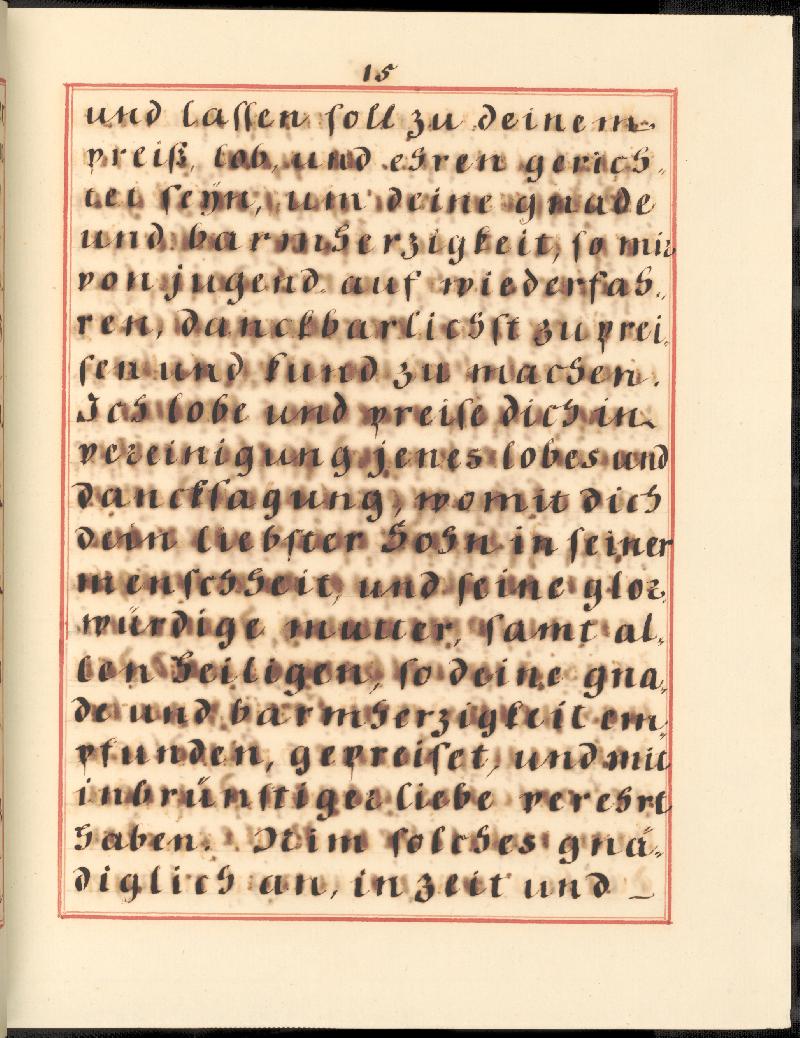 15
und lassen soll zu deinem
preiß, lob, und ehren gerich-
tet seÿn, um deine gnade
und barmherzigkeit, so mir
von jugend auf wiederfah-
ren, danckbarlichst zu prei-
sen und kund zu machen.
Ich lobe und preise dich in
vereinigung jenes lobes und
dancksagung, womit dich
dein liebster Sohn in seiner
menschheit, und seine glor-
würdige mutter, samt al-
len Heiligen, so deine gna-
de und barmherzigkeit em-
pfunden, gepreiset, und mit
inbrünstiger liebe verehrt
haben. Nim solches gnä-
diglich an, in zeit und